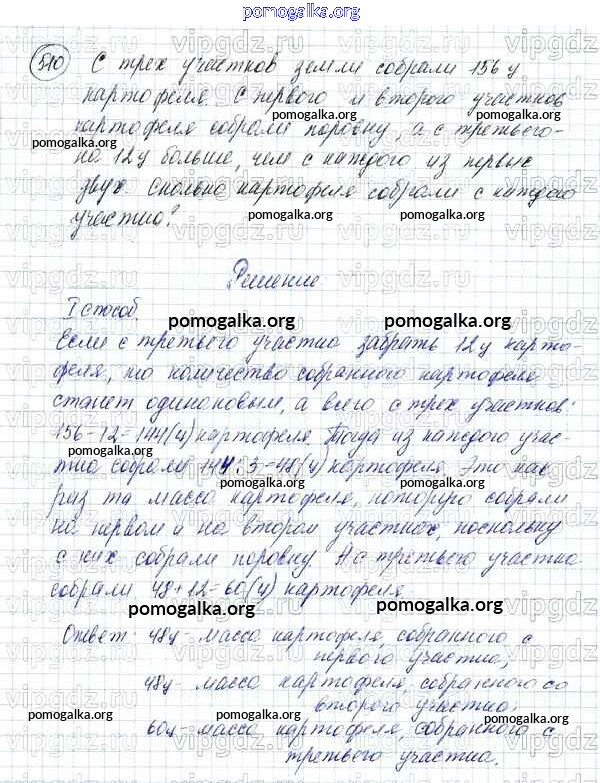 pomogalka.org
510 С трех участков земли собрали 156 ц
картофеля. С первого и второго участков
картофеля собрали поровну, а с третьего-
на 12 ц больше, чем с каждого из первых
двух. Сколько картофеля собрали с каждого
участка?
Решение
I способ.
Если с третьего участка забрать 12 ц карто-
феля, то количество собранного картофеля
станет одинаковым, а всего с трех участков:
156-12=144(ц) картофеля. Тогда из каждого учас-
тка собрали 144:3=48(ц) картофеля. Это как
раз та масса картофеля, которую собрали
на первом и на втором участках, поскольку
с них собрали поровну. А с третьего участка
собрали 48+12=60(ц) картофеля.
Ответ: 48ц - масса картофеля, собранного с
первого участка;
48ц - масса картофеля, собранного со
второго участка;
60ц - масса картофеля, собранного с
третьего участка.